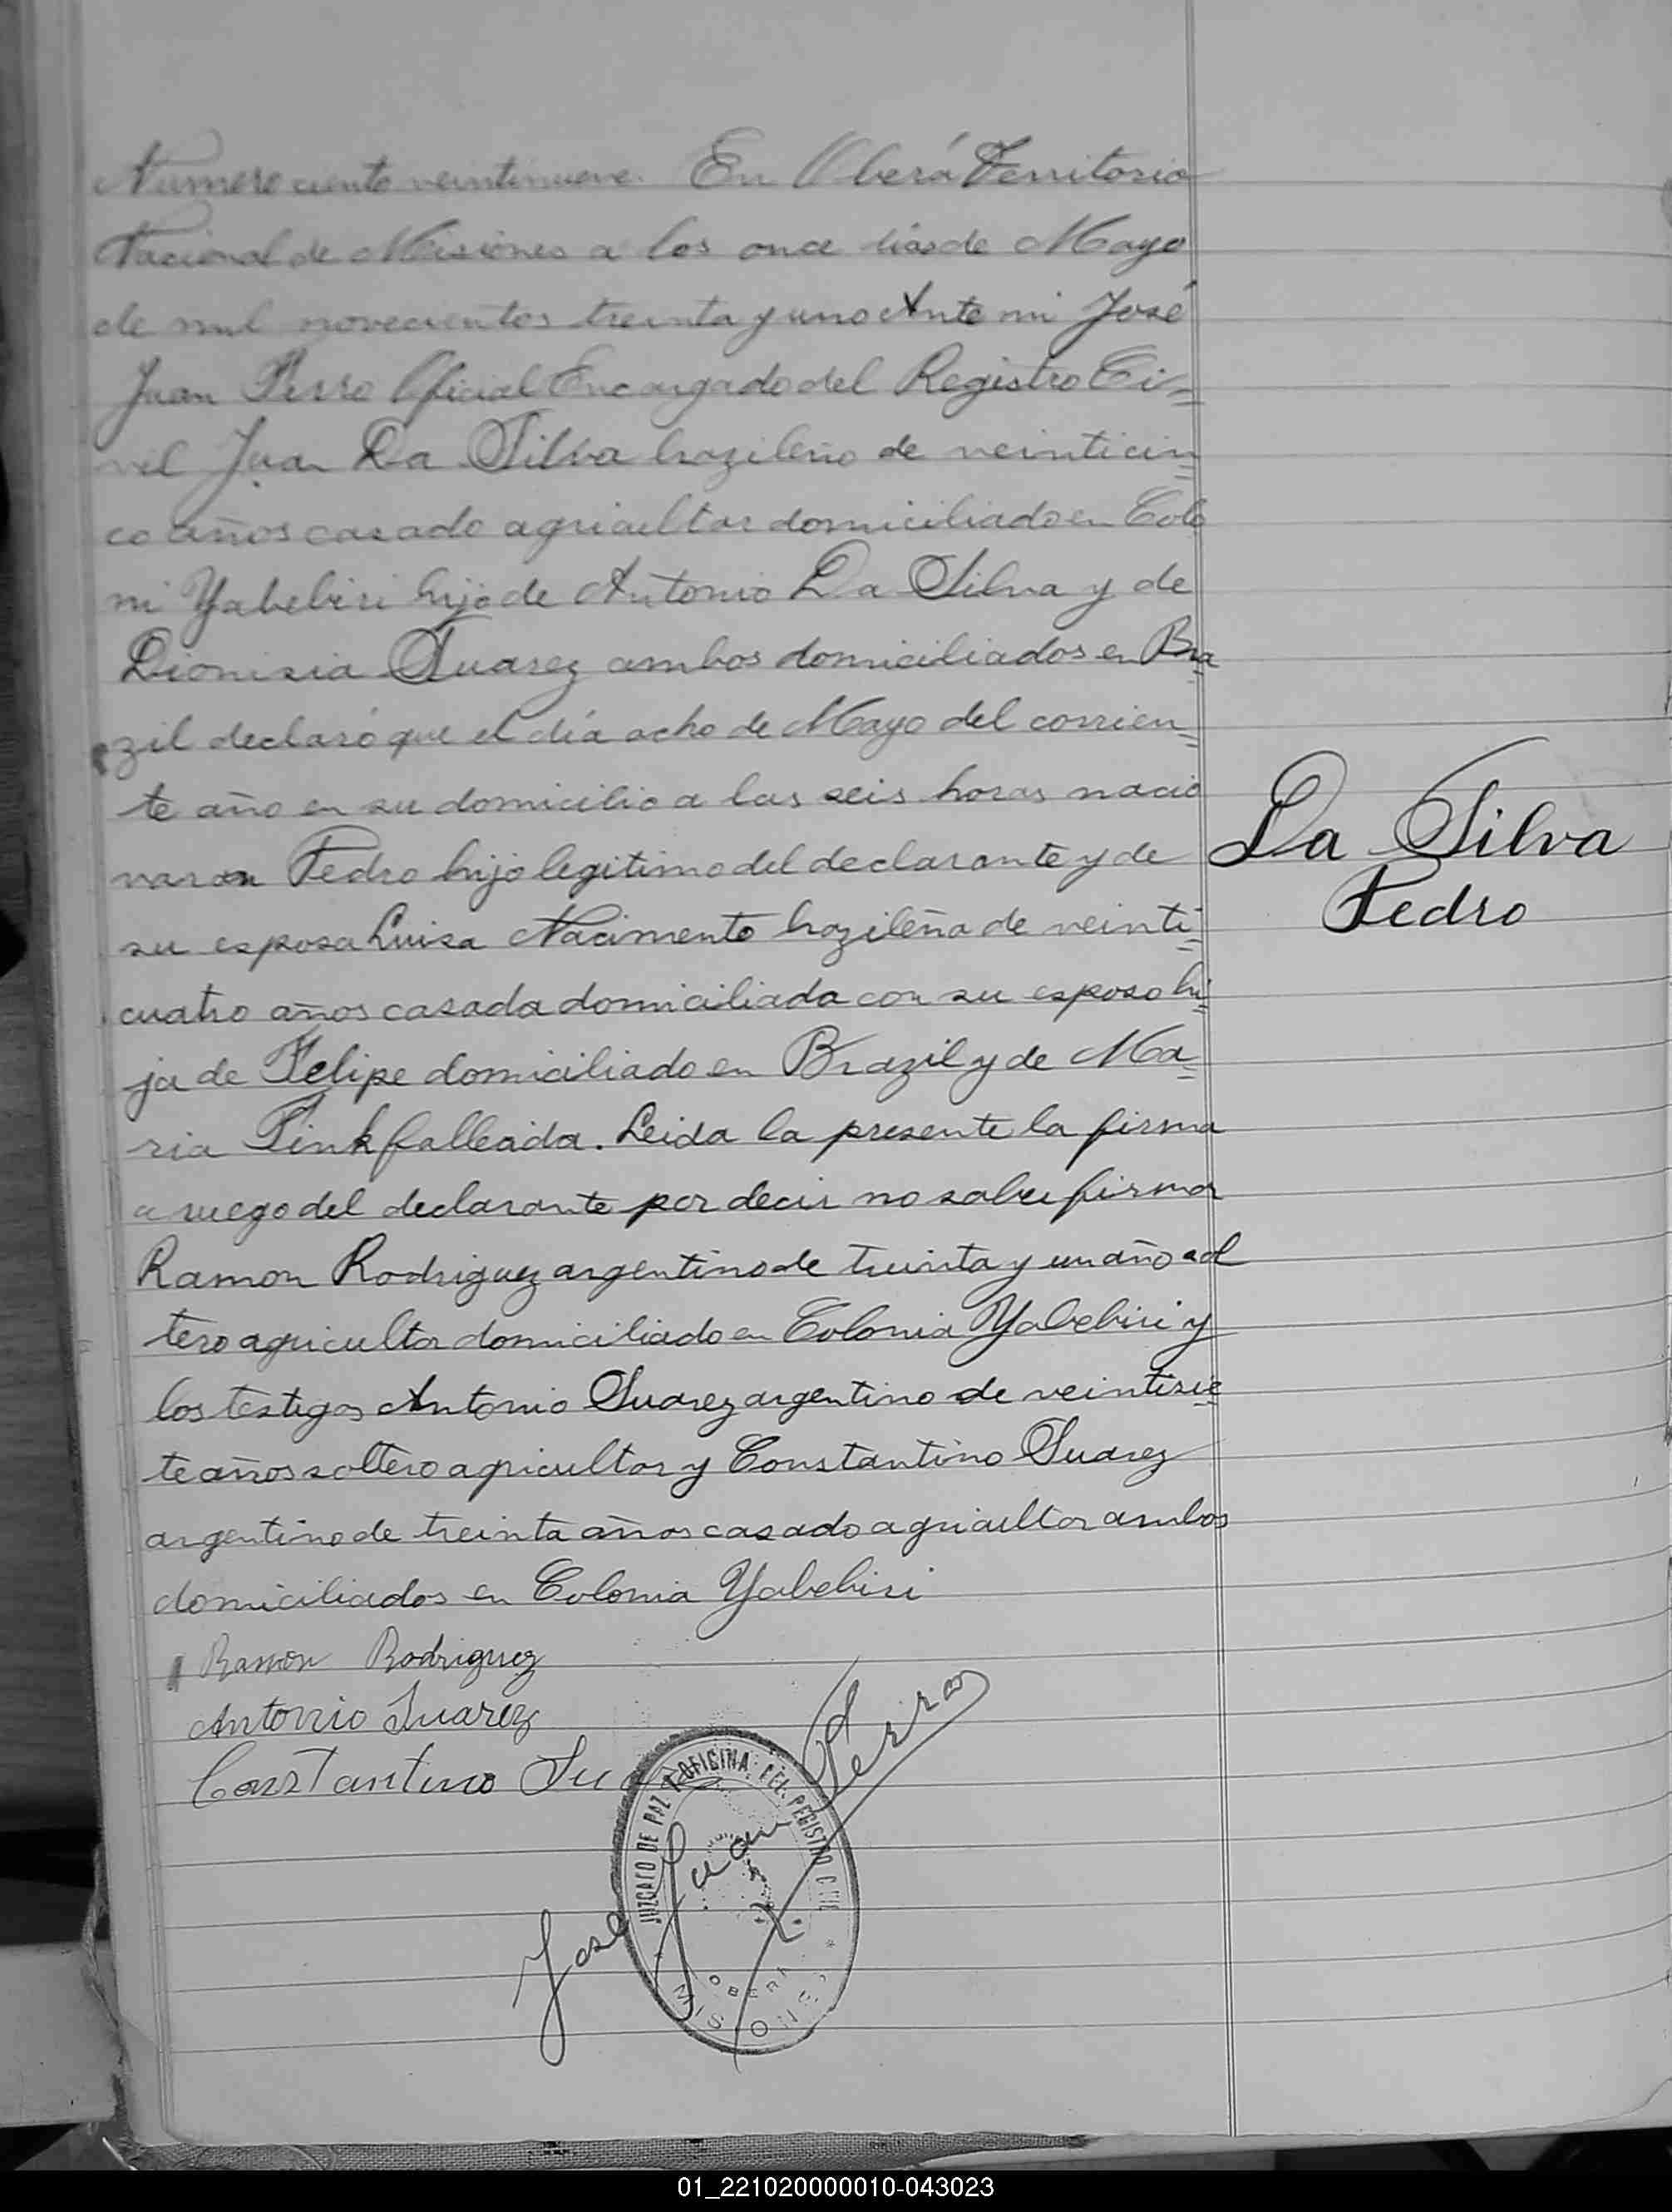 Numero ciento veintinueve. En Oberá Territorio
Nacional de Misiones a los once dias de Mayo
de mil novecientos treinta y uno Ante mi José
Juan Perro Oficial Encargado del Registro Ci=
vil Juan Da Silva brazileño de veinticin=
co años casado agricultor domiciliado en Colo
ni Yabebiri hijo de Antonio Da Silva y de
Dionisia Suarez ambos domiciliados en Bra=
zil declaró que el día ocho de Mayo del corrien=
te año en su domicilio a las seis horas nacio
varon Pedro hijo legitimo del declarante y de
La Silva
Pedro
su esposa Luisa Nacimento brazileña de veinti=
cuatro años casada domiciliada con su esposo hi=
ja de Felipe domiciliado en Brazil y de Ma=
ria Pink falleada. Leida la presente la firma
a ruego del declarante por decir no saber firmar
Ramon Rodriguez argentino de treinta y un año sol
tero agricultor domiciliado en Colonia Yabebiri y
los testigos Antonio Suarez argentino de veintisie=
te años soltero agricultor y Constantino Suarez
argentino de treinta años casado agricultor ambos
domiciliados en Colonia Yabebiri
Ramon Rodriguez
Antonio Suarez
Constantino
José Juan Perro
JUZGADO DE PAZ Y OFICINA DEL REGISTRO CIVIL
OBERA
MISIONES
01_221020000010-043023